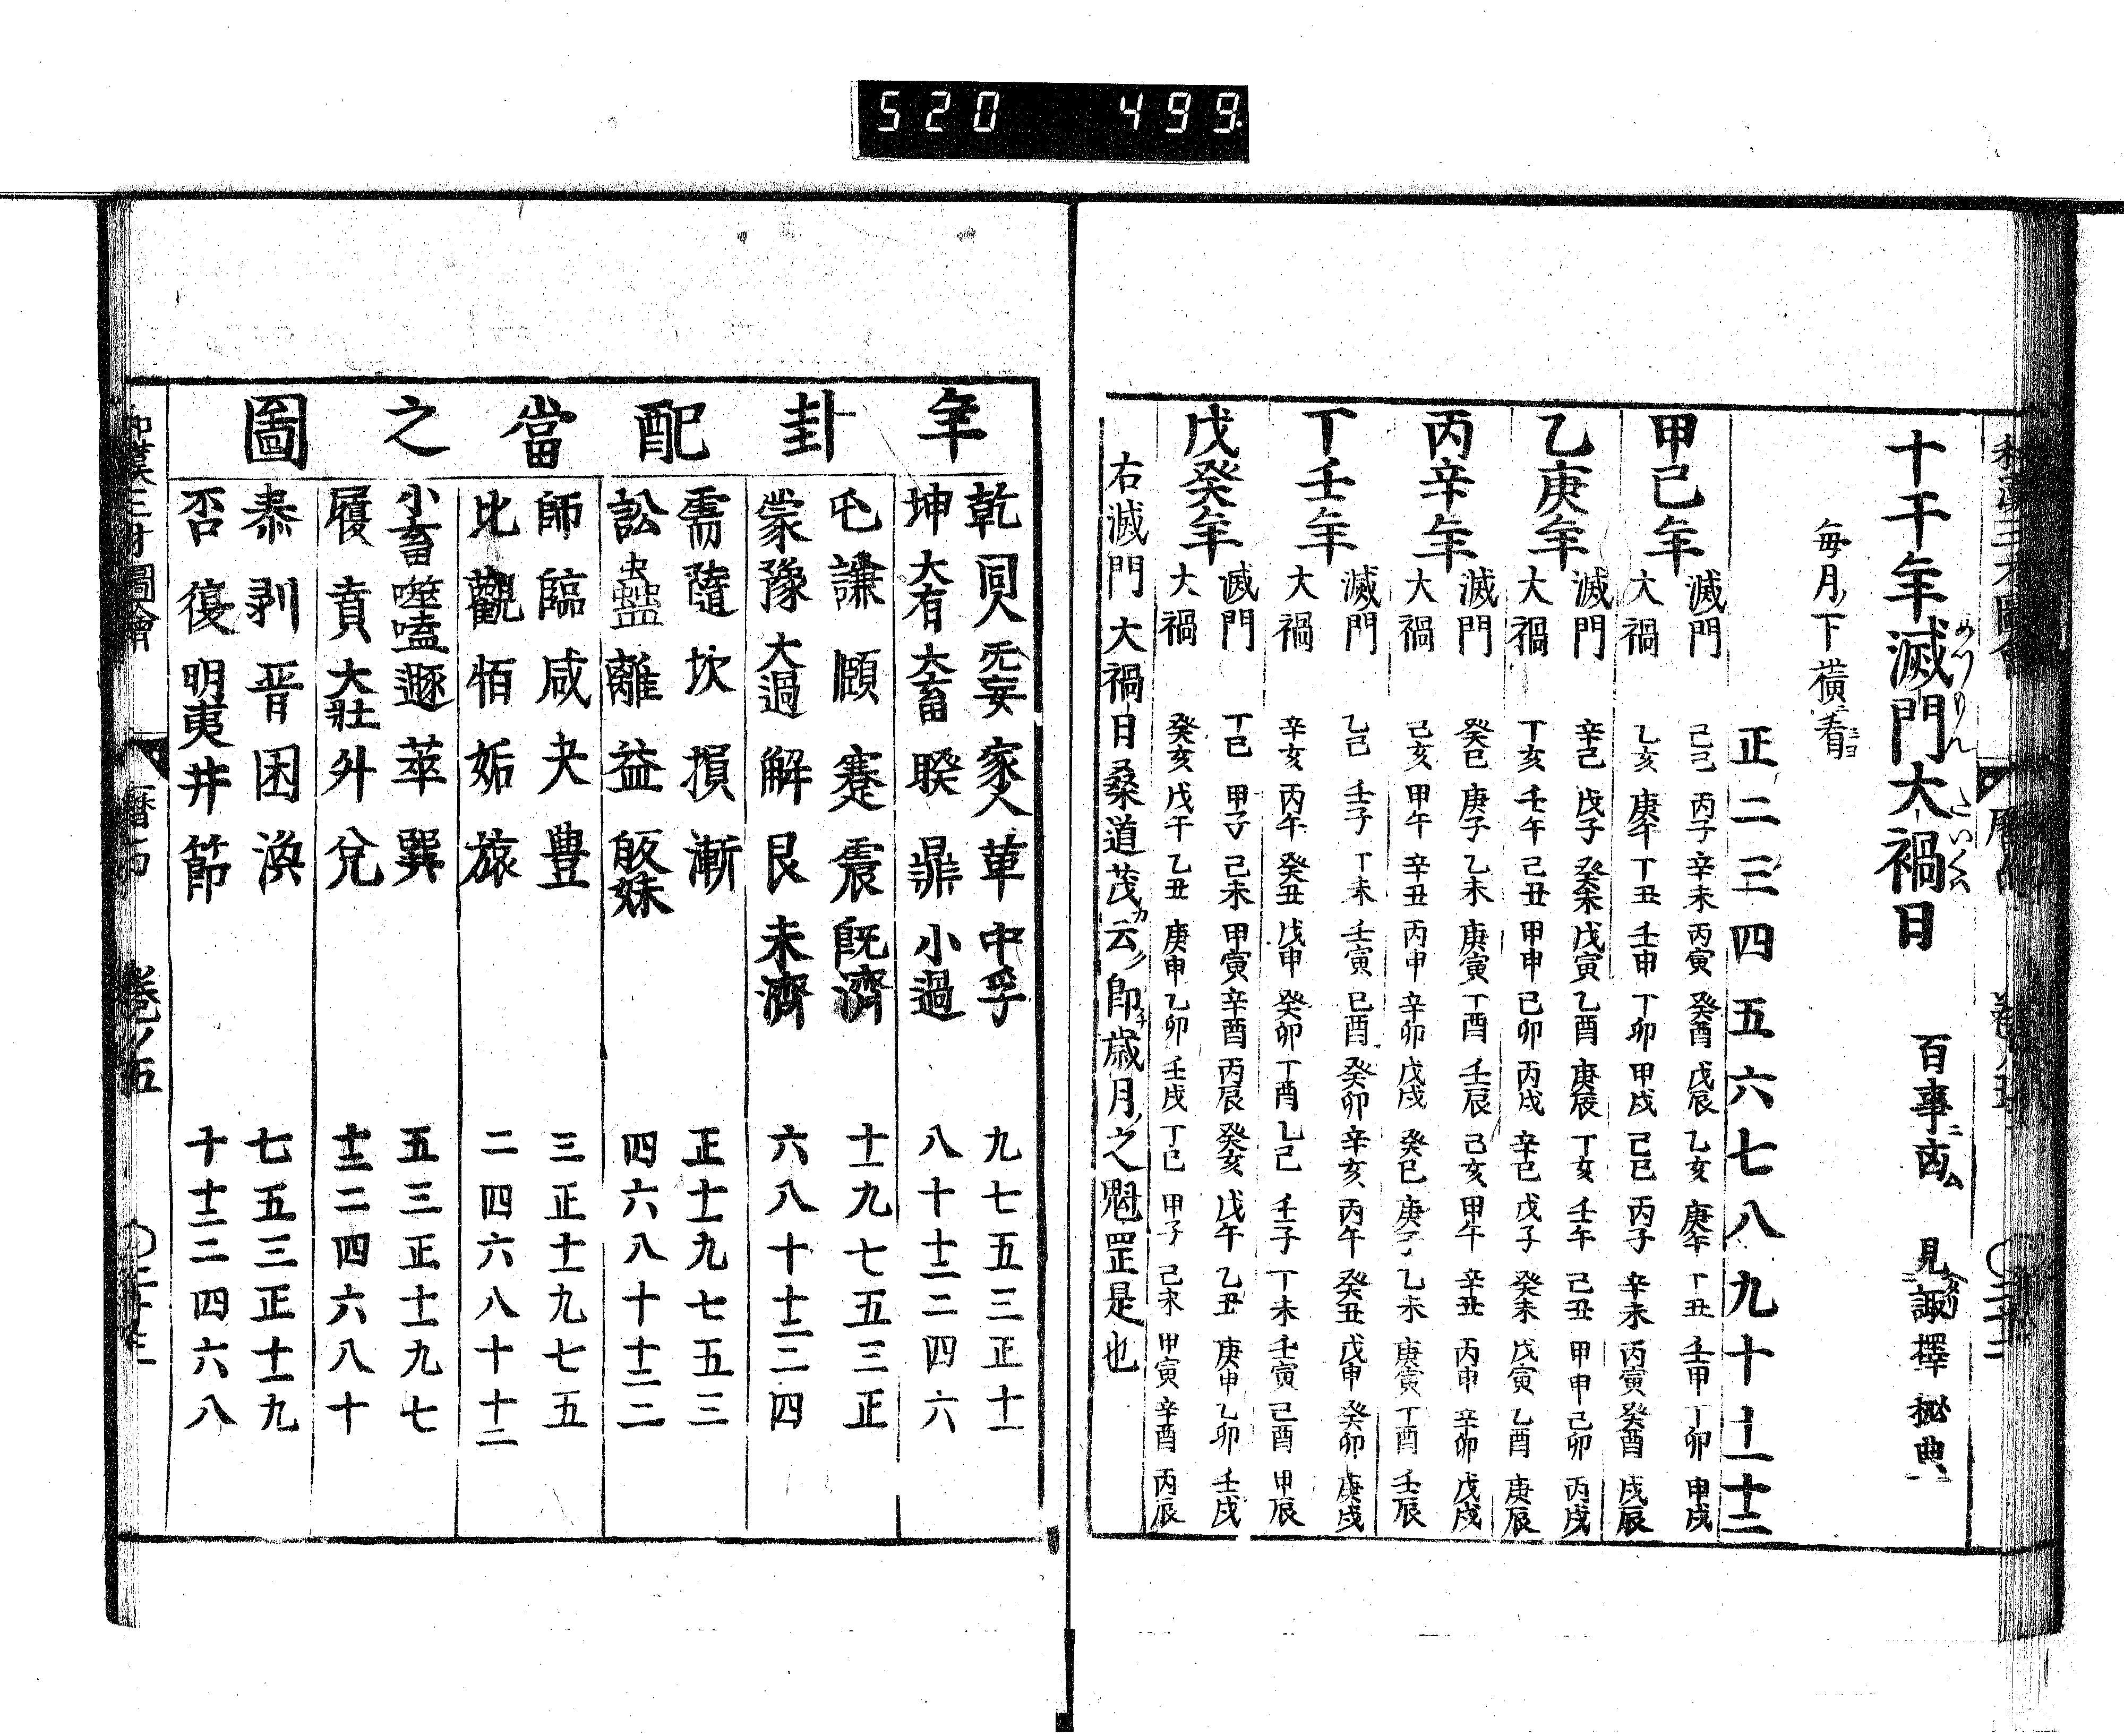 520 499
十干年滅門大禍日 百事ニ凶 見諏擇秘典
めつもん たいくは
毎月ノ下横ニ看ヨ
正二三四五六七八九十十一十二
甲己年
滅門 己巳 丙子 辛未 丙寅 癸酉 戊辰 乙亥 庚午 丁丑 壬申 丁卯 甲戌
大禍 乙亥 庚午 丁丑 壬申 丁卯 甲戌 己巳 丙子 辛未 丙寅 癸酉 戊辰
乙庚年
滅門 辛巳 戊子 癸未 戊寅 乙酉 庚辰 丁亥 壬午 己丑 甲申 己卯 丙戌
大禍 丁亥 壬午 己丑 甲申 己卯 丙戌 辛巳 戊子 癸未 戊寅 乙酉 庚辰
丙辛年
滅門 癸巳 庚子 乙未 庚寅 丁酉 壬辰 己亥 甲午 辛丑 丙申 辛卯 戊戌
大禍 己亥 甲午 辛丑 丙申 辛卯 戊戌 癸巳 庚子 乙未 庚寅 丁酉 壬辰
丁壬年
滅門 乙巳 壬子 丁未 壬寅 己酉 癸卯 辛亥 丙午 癸丑 戊申 癸卯 庚戌
大禍 辛亥 丙午 癸丑 戊申 癸卯 丁酉 乙巳 壬子 丁未 壬寅 己酉 甲辰
戊癸年
滅門 丁巳 甲子 己未 甲寅 辛酉 丙辰 癸亥 戊午 乙丑 庚申 乙卯 壬戌
大禍 癸亥 戊午 乙丑 庚申 乙卯 壬戌 丁巳 甲子 己未 甲寅 辛酉 丙辰
右滅門大禍日桑道茂カ云ク即チ歳月ノ之魁罡是也
年卦配當之圖
乾 同人 无妄 家人 革 中孚 九七五三正十一
坤 大有 大畜 睽 鼎 小過 八十十二二四六
屯 謙 頤 蹇 震 既濟 十一九七五三正
蒙 豫 大過 解 艮 未濟 六八十十二二四
需 隨 坎 損 漸 正十一九七五三
訟 蠱 離 益 皈妹 四六八十十二二
師 臨 咸 夬 豊 三正十一九七五
比 觀 恒 姤 旅 二四六八十十二
小畜 噬嗑 遯 萃 巽 五三正十一九七
履 賁 大壯 升 兌 十二二四六八十
泰 剥 晋 困 渙 七五三正十一九
否 復 明夷 井 節 十十二二四六八
和漢三才圖會 暦占 巻ノ五